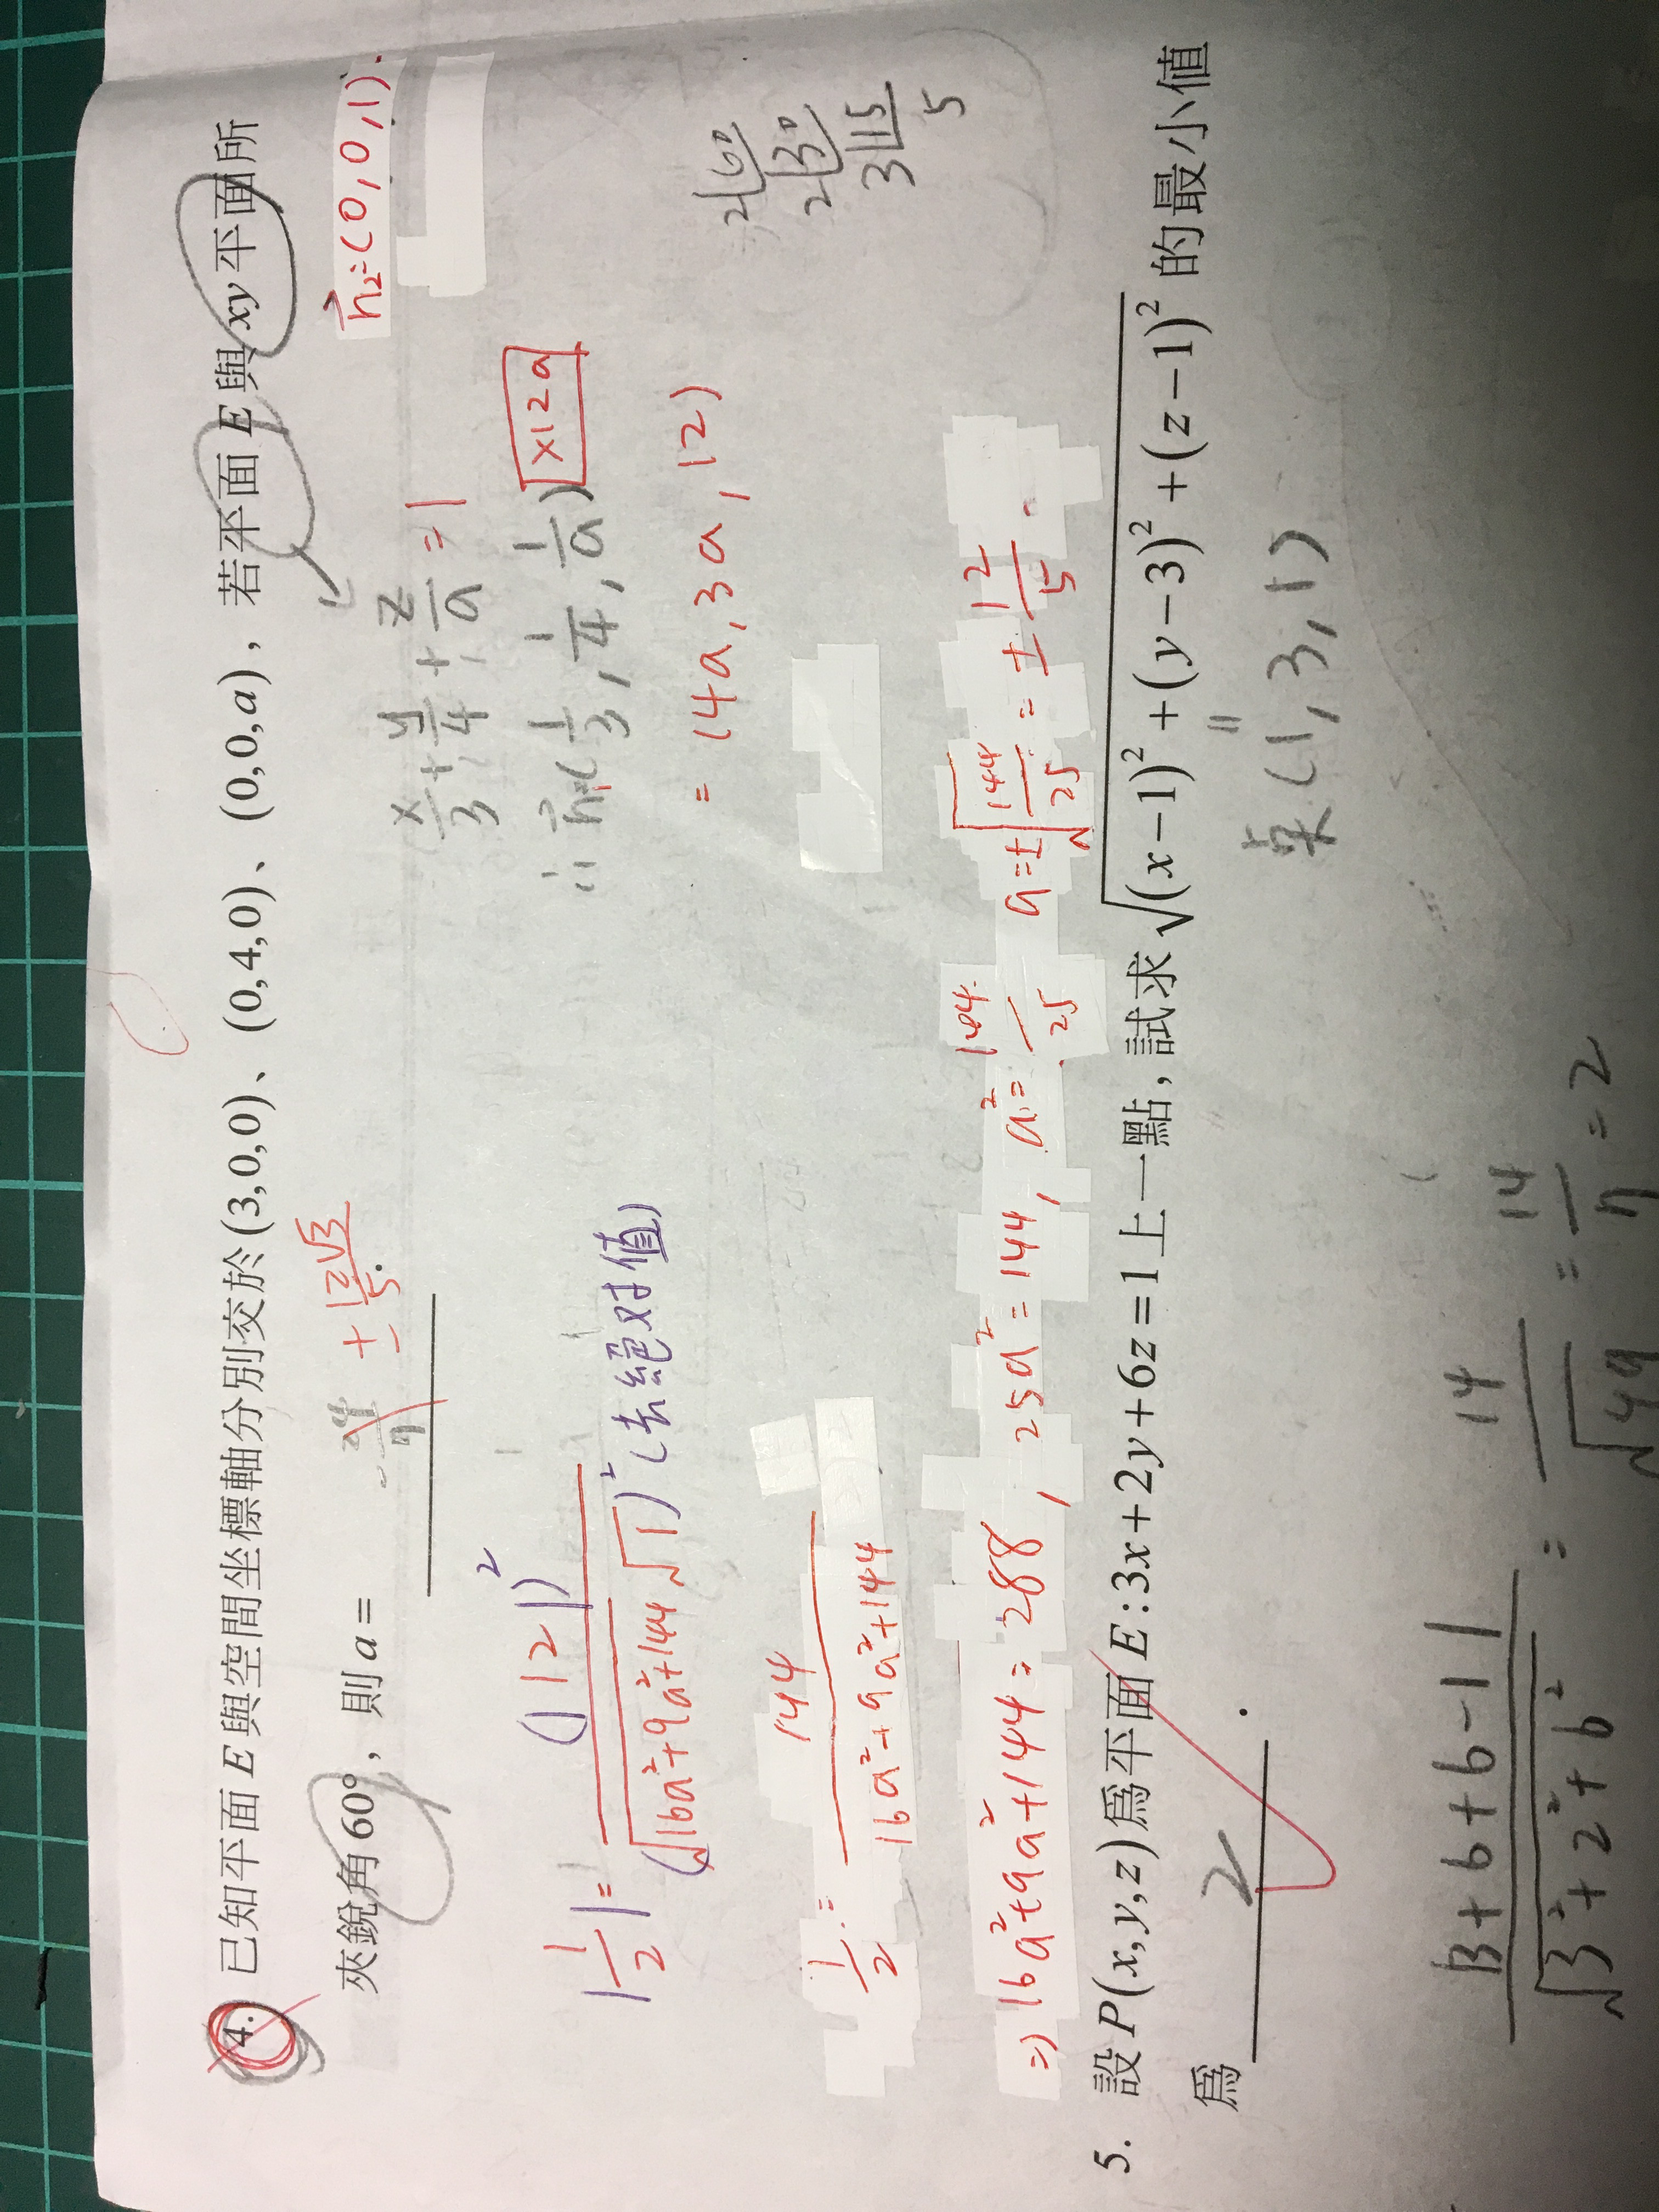 4. 已知平面 E 與空間坐標軸分別交於 (3,0,0)、(0,4,0)、(0,0,a)，若平面 E 與 xy 平面所
夾銳角 60°，則 a = ± 12√3/5 .
n₂=(0,0,1).
x/3 + y/4 + z/a = 1
∴ n₁=(1/3, 1/4, 1/a) ×12a
= (4a, 3a, 12)
|1/2|² = (|12|)² / (√16a²+9a²+144 √1)² (去絕对值)
2|60
2|30
3|15
5
1/2 = 144 / 16a²+9a²+144
⇒ 16a²+9a²+144 = 288, 25a² = 144, a² = 144/25 a = ±√144/25 = ± 12/5 .
5. 設 P(x,y,z) 爲平面 E:3x+2y+6z=1 上一點，試求 √(x−1)²+(y−3)²+(z−1)² 的最小值
爲 2 .
點 (1,3,1)
|3+6+6−1| / √3²+2²+6² = 14/√49 = 14/7 = 2